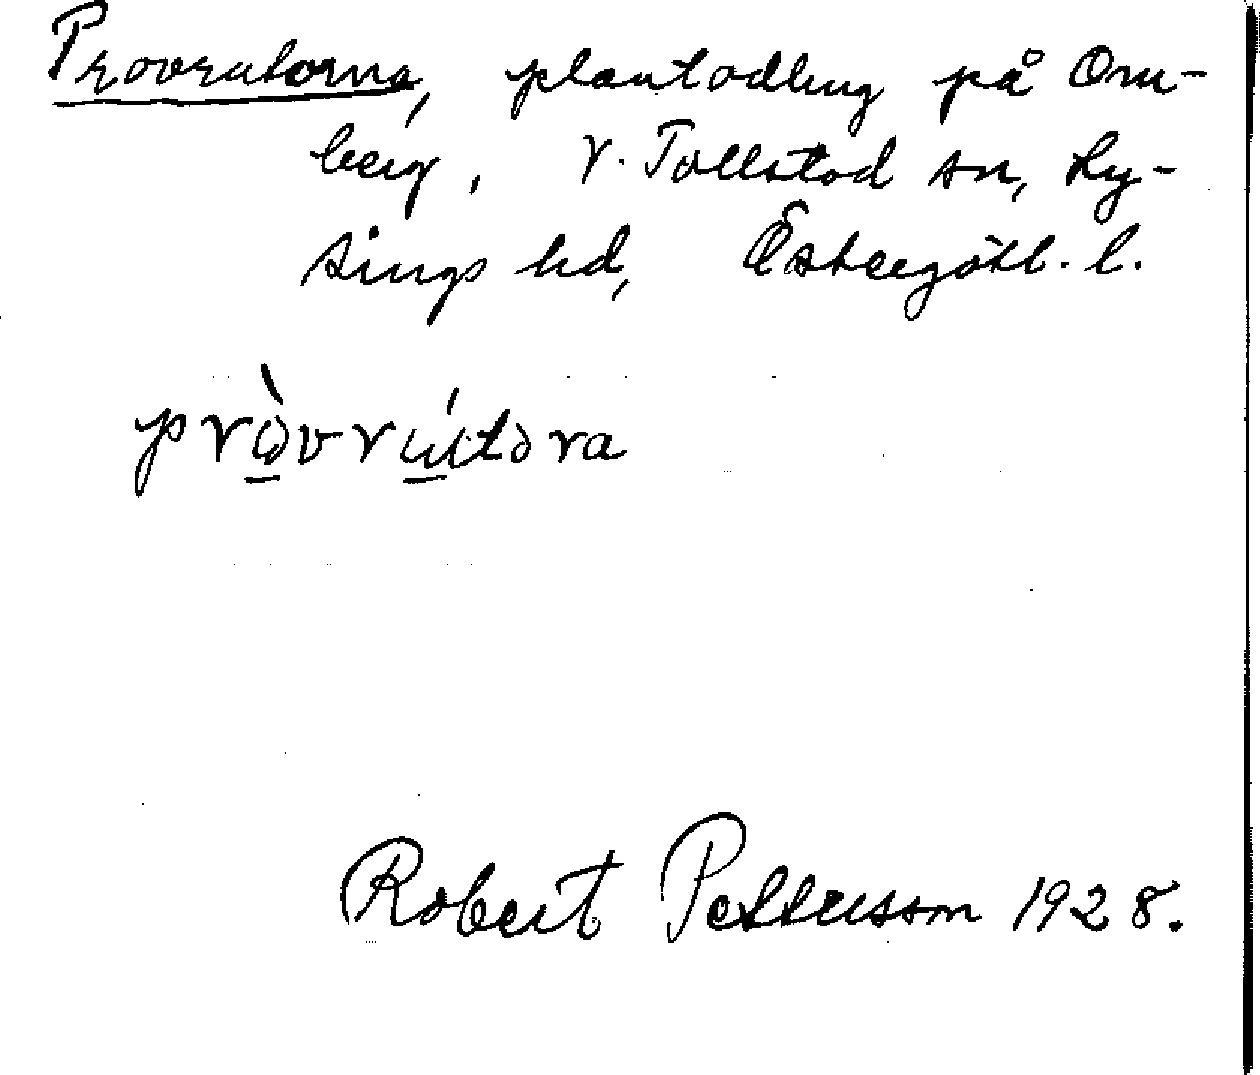 Provrutorna, plantodling på Om-
berg, V. Tollstad sn, Ly-
sings hd, Östergötl. l.
pròvrútora
Robert Pettersson 1928.